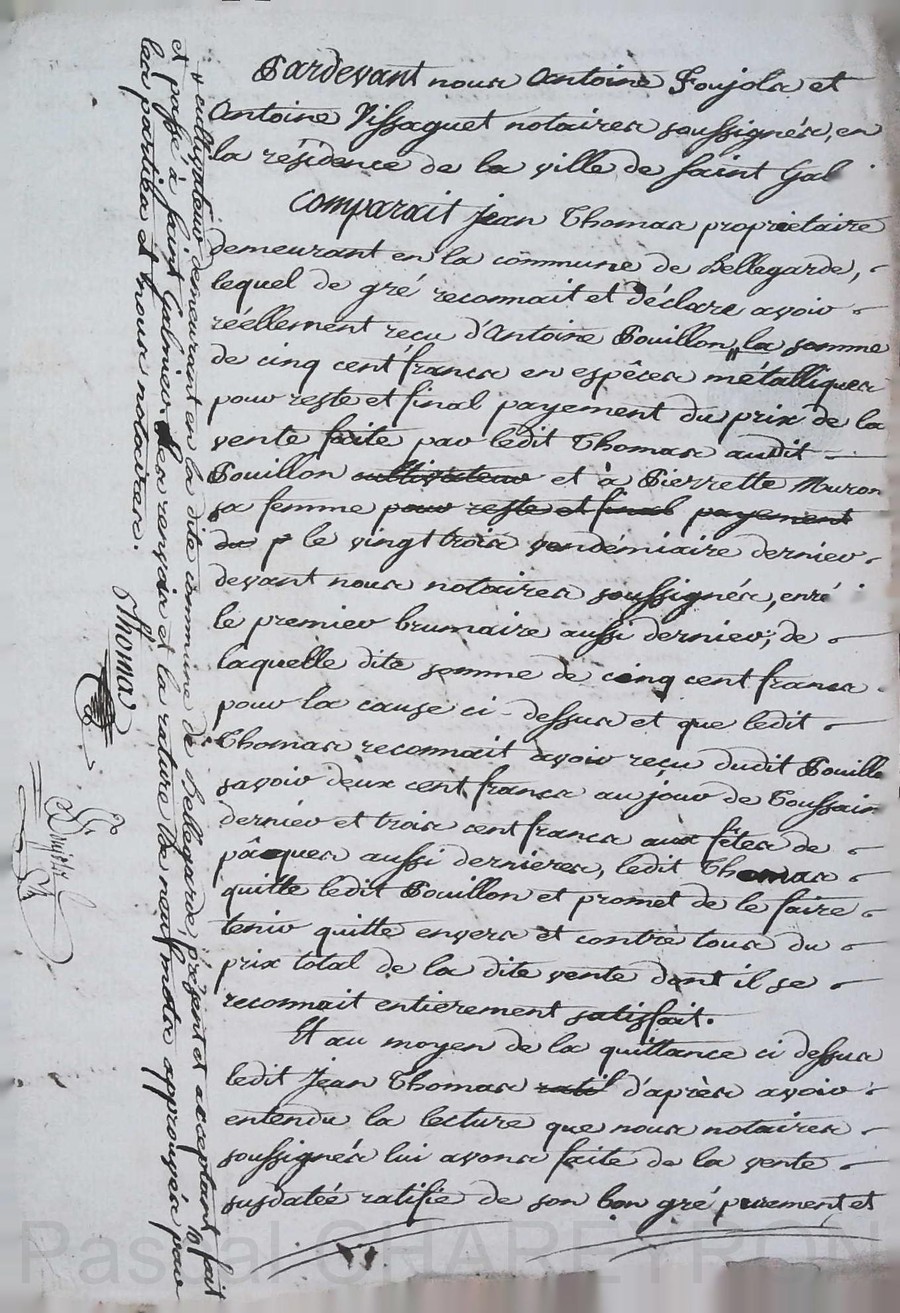 Pardevant nous Antoine Foujols et
Antoine Vissaguet notaires soussignés, en
la résidence de la ville de Saint Gal
Comparait Jean Thomas propriétaire
demeurant en la commune de Bellegarde,
lequel de gré reconnait et déclare avoir
réellement recu d'Antoine Souillon, la somme
de cinq cent francs en espêces métalliques
pour reste et final payement du prix de la
vente faite par ledit Thomas audit
Souillon cultivateur et à Pierrette Muron
sa femme pour reste et final payement
du p le vingt trois vendémiaire dernier
devant nous notaires soussignés, enré
le premier brumaire aussi dernier; de
laquelle dite somme de cinq cent francs
pour la cause ci-dessus et que ledit
Thomas reconnait avoir recu dudit Souillo
savoir deux cent francs au jour de Toussain
dernier et trois cent francs aux fêtes de
pâques aussi dernieres, ledit Thomas
quitte ledit Souillon et promet de le faire
tenir quitte envers et contre tous du
prix total de la dite vente dont il se
reconnait entierement satisfait.
Et au moyen de la quittance ci dessus
ledit Jean Thomas ratif d'après avoir
entendu la lecture que nous notaires
soussignés lui avons faite de la vente
susdatée ratifie de son bon gré purement et
+ cultivateur demeurant en la dite commune de Bellegarde, présent et acceptant fait
et passé à Saint Galmier les renvois et la rature de neuf mots approuvés pour
les parties et nous notaires.
Thomas
Pascal CHAREYRON